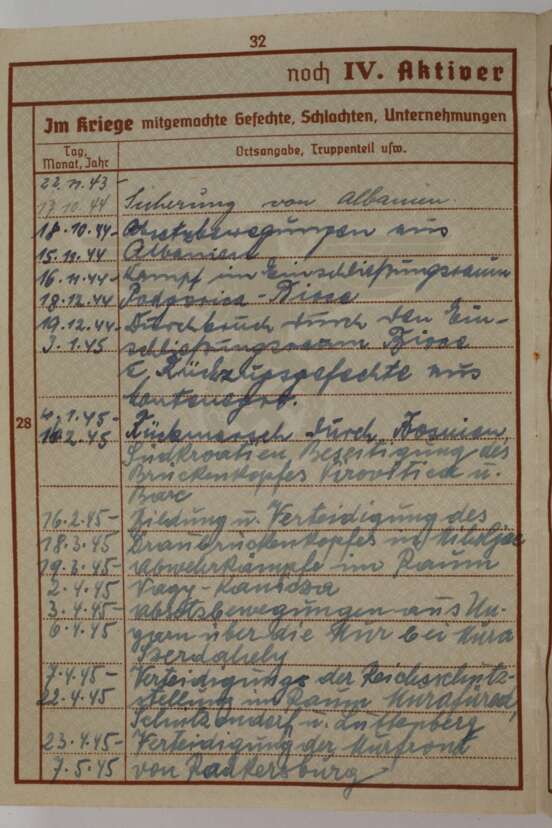 32
noch IV. Aktiver
Im Kriege mitgemachte Gefechte, Schlachten, Unternehmungen
Tag, Monat, Jahr
Ortsangabe, Truppenteil usw.
22.11.43-
17.10.44 Sicherung von Albanien
18.10.44- Absetzbewegungen aus
15.11.44 Albanien
16.11.44- Kampf im Einschließungsraum
18.12.44 Podgorica - Bioce
19.12.44- Durchbruch durch den Ein-
3.1.45 schließungsraum Bioce
u. Rückzugsgefechte aus
28
4.1.45- Rückmarsch durch Bosnien,
2.45 Südkroatien, Beseitigung des
Brückenkopfes Virovitica u.
Barc
16.2.45- Bildung u. Verteidigung des
18.3.45 Draubrückenkopfes
19.3.45- Abwehrkämpfe im Raum
2.4.45 Nagy-Kanizsa
3.4.45- Absetzbewegungen aus Un-
6.4.45 garn über die Mur bei Mura
Szerdahely
7.4.45- Verteidigung der Reichsschutz-
22.4.45 stellung im Raum Murafüred,
u. Luttenberg
23.4.45- Verteidigung der Murfront
7.5.45 von Radkersburg